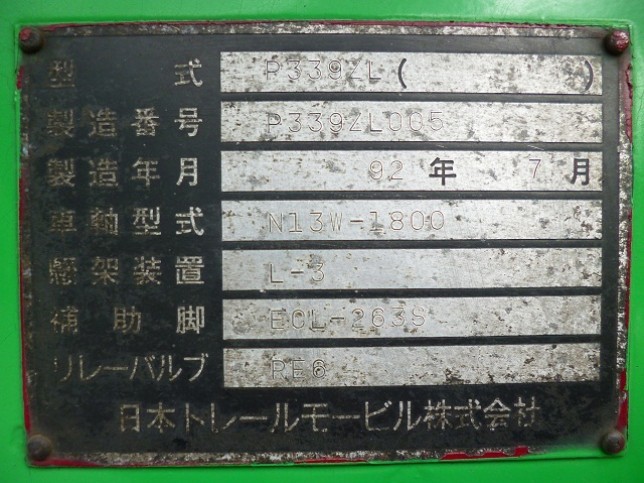 型式 P339ZL( )
製造番号 P339ZL005
製造年月 92年 7月
車軸型式 N13W-1800
懸架装置 L-3
補助脚 EOL-263S
リレーバルブ RE6
日本トレールモービル株式会社